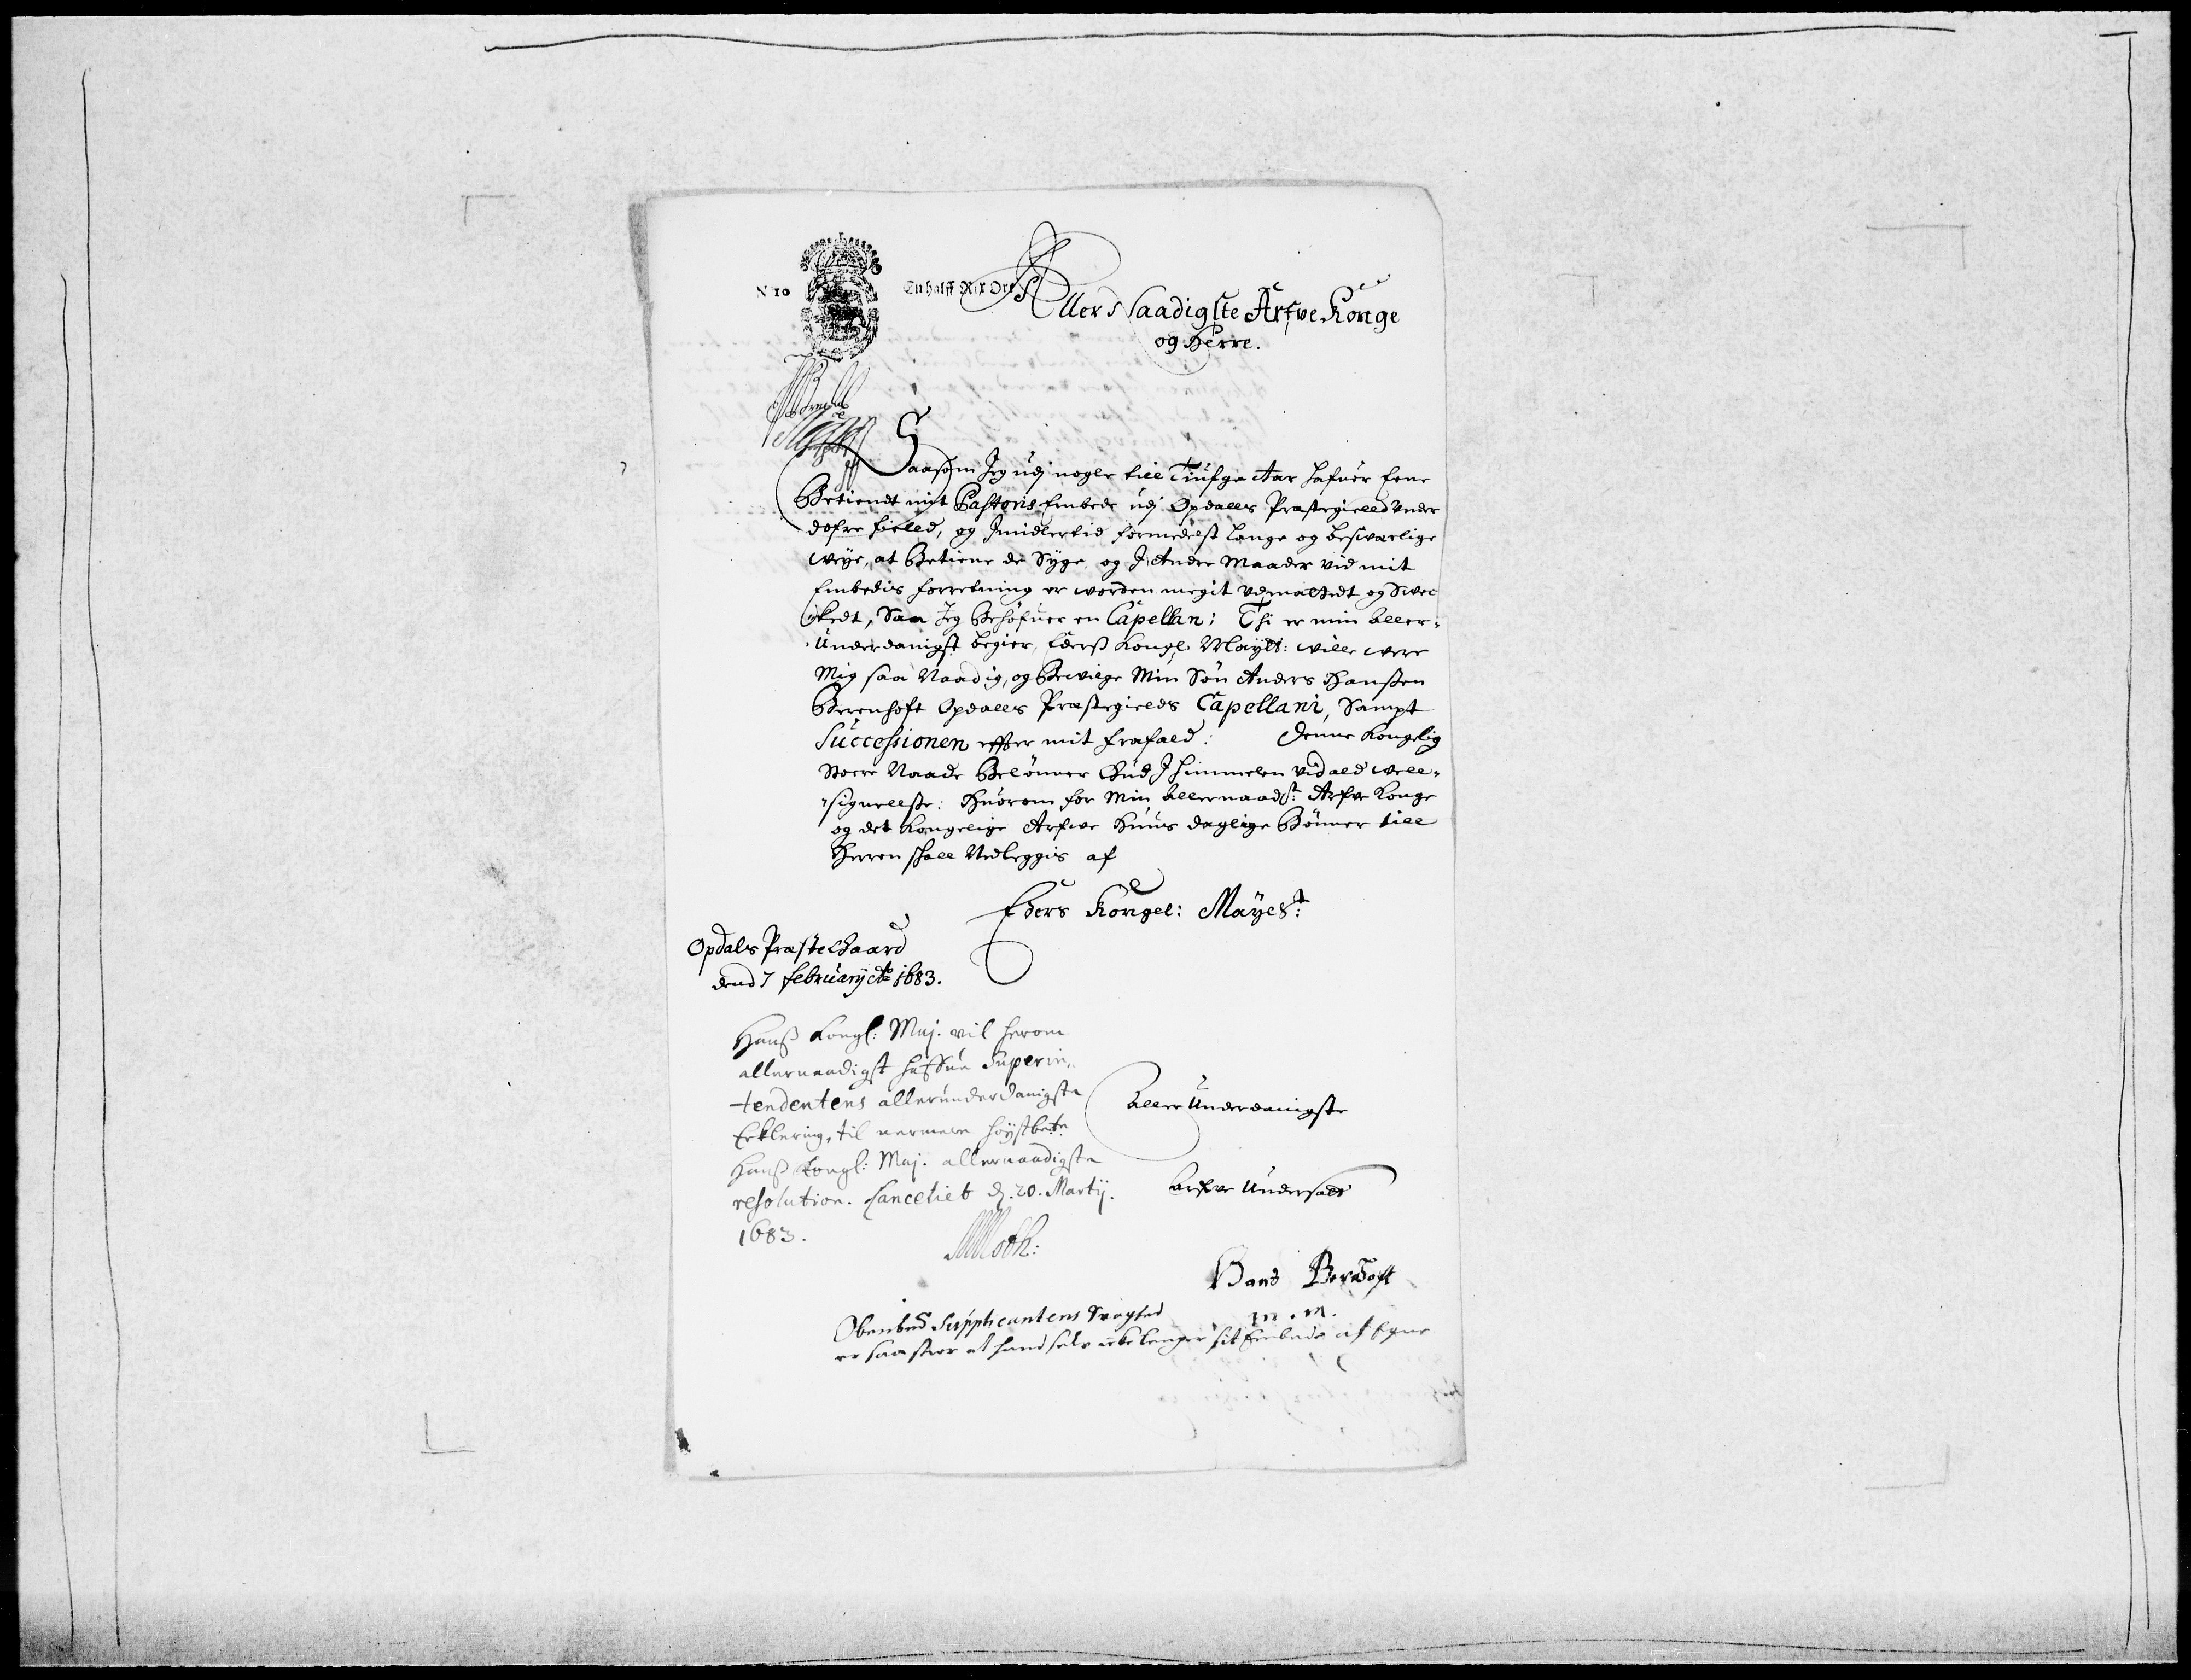 N 10
En halff Rix Ort
AllerNaadigste Arfve Konge
og Herre.
Saasom Jeg udj nogle till Tiufge Aar hafuer Eene
Betiendt mit Pastoris Embede udj Opdalls Præstegield Under
dofre field, og Jmidlertid formedelst lange og besværlige
Weye, at Betiene de Syge, og J Andre Maader ved mit
Embedis forretning er worden megit Udmattedt og Swec
kedt, Saa Jeg Behøfuer en Capellan; Thi er min aller-
Underdanigst begier, Ederß Kongl. Maytt: wille were
Mig saa Naadig, og Bevilge Min Søn Anders Hanßen
Berenhoft Opdalls Præstegields Capellani, Sampt
Successionen effter mit frafald: Denne Kongelig
Store Naade Belønner Gud J himmelen ved ald well-
signellße: Huorom for Min allernaadst: Arfve Konge
og det Kongelige Arfve Huus daglige Bønner till
Herren skall Nedleggis af
Eders Kongel: Mayest:
Opdals Præstegaard
dend 7 february Ao 1683.
Hanß Kongl: Maj. vil herom
allernaadigst haffue Superin-
tendentens allerunderdanigste
Erklering, til nermere høystbete
Hanß Kongl: Maj. allernaadigste
resolution. Cancelliet d. 20. Martij.
1683.
Moth:
Aller Underdanigste
Arfve Undersaat
Hans Bernhoft
m. m.
Obenbed Supplicantens Svaghed
er saa stor at hand selv icke lenger sit Embede af Egne